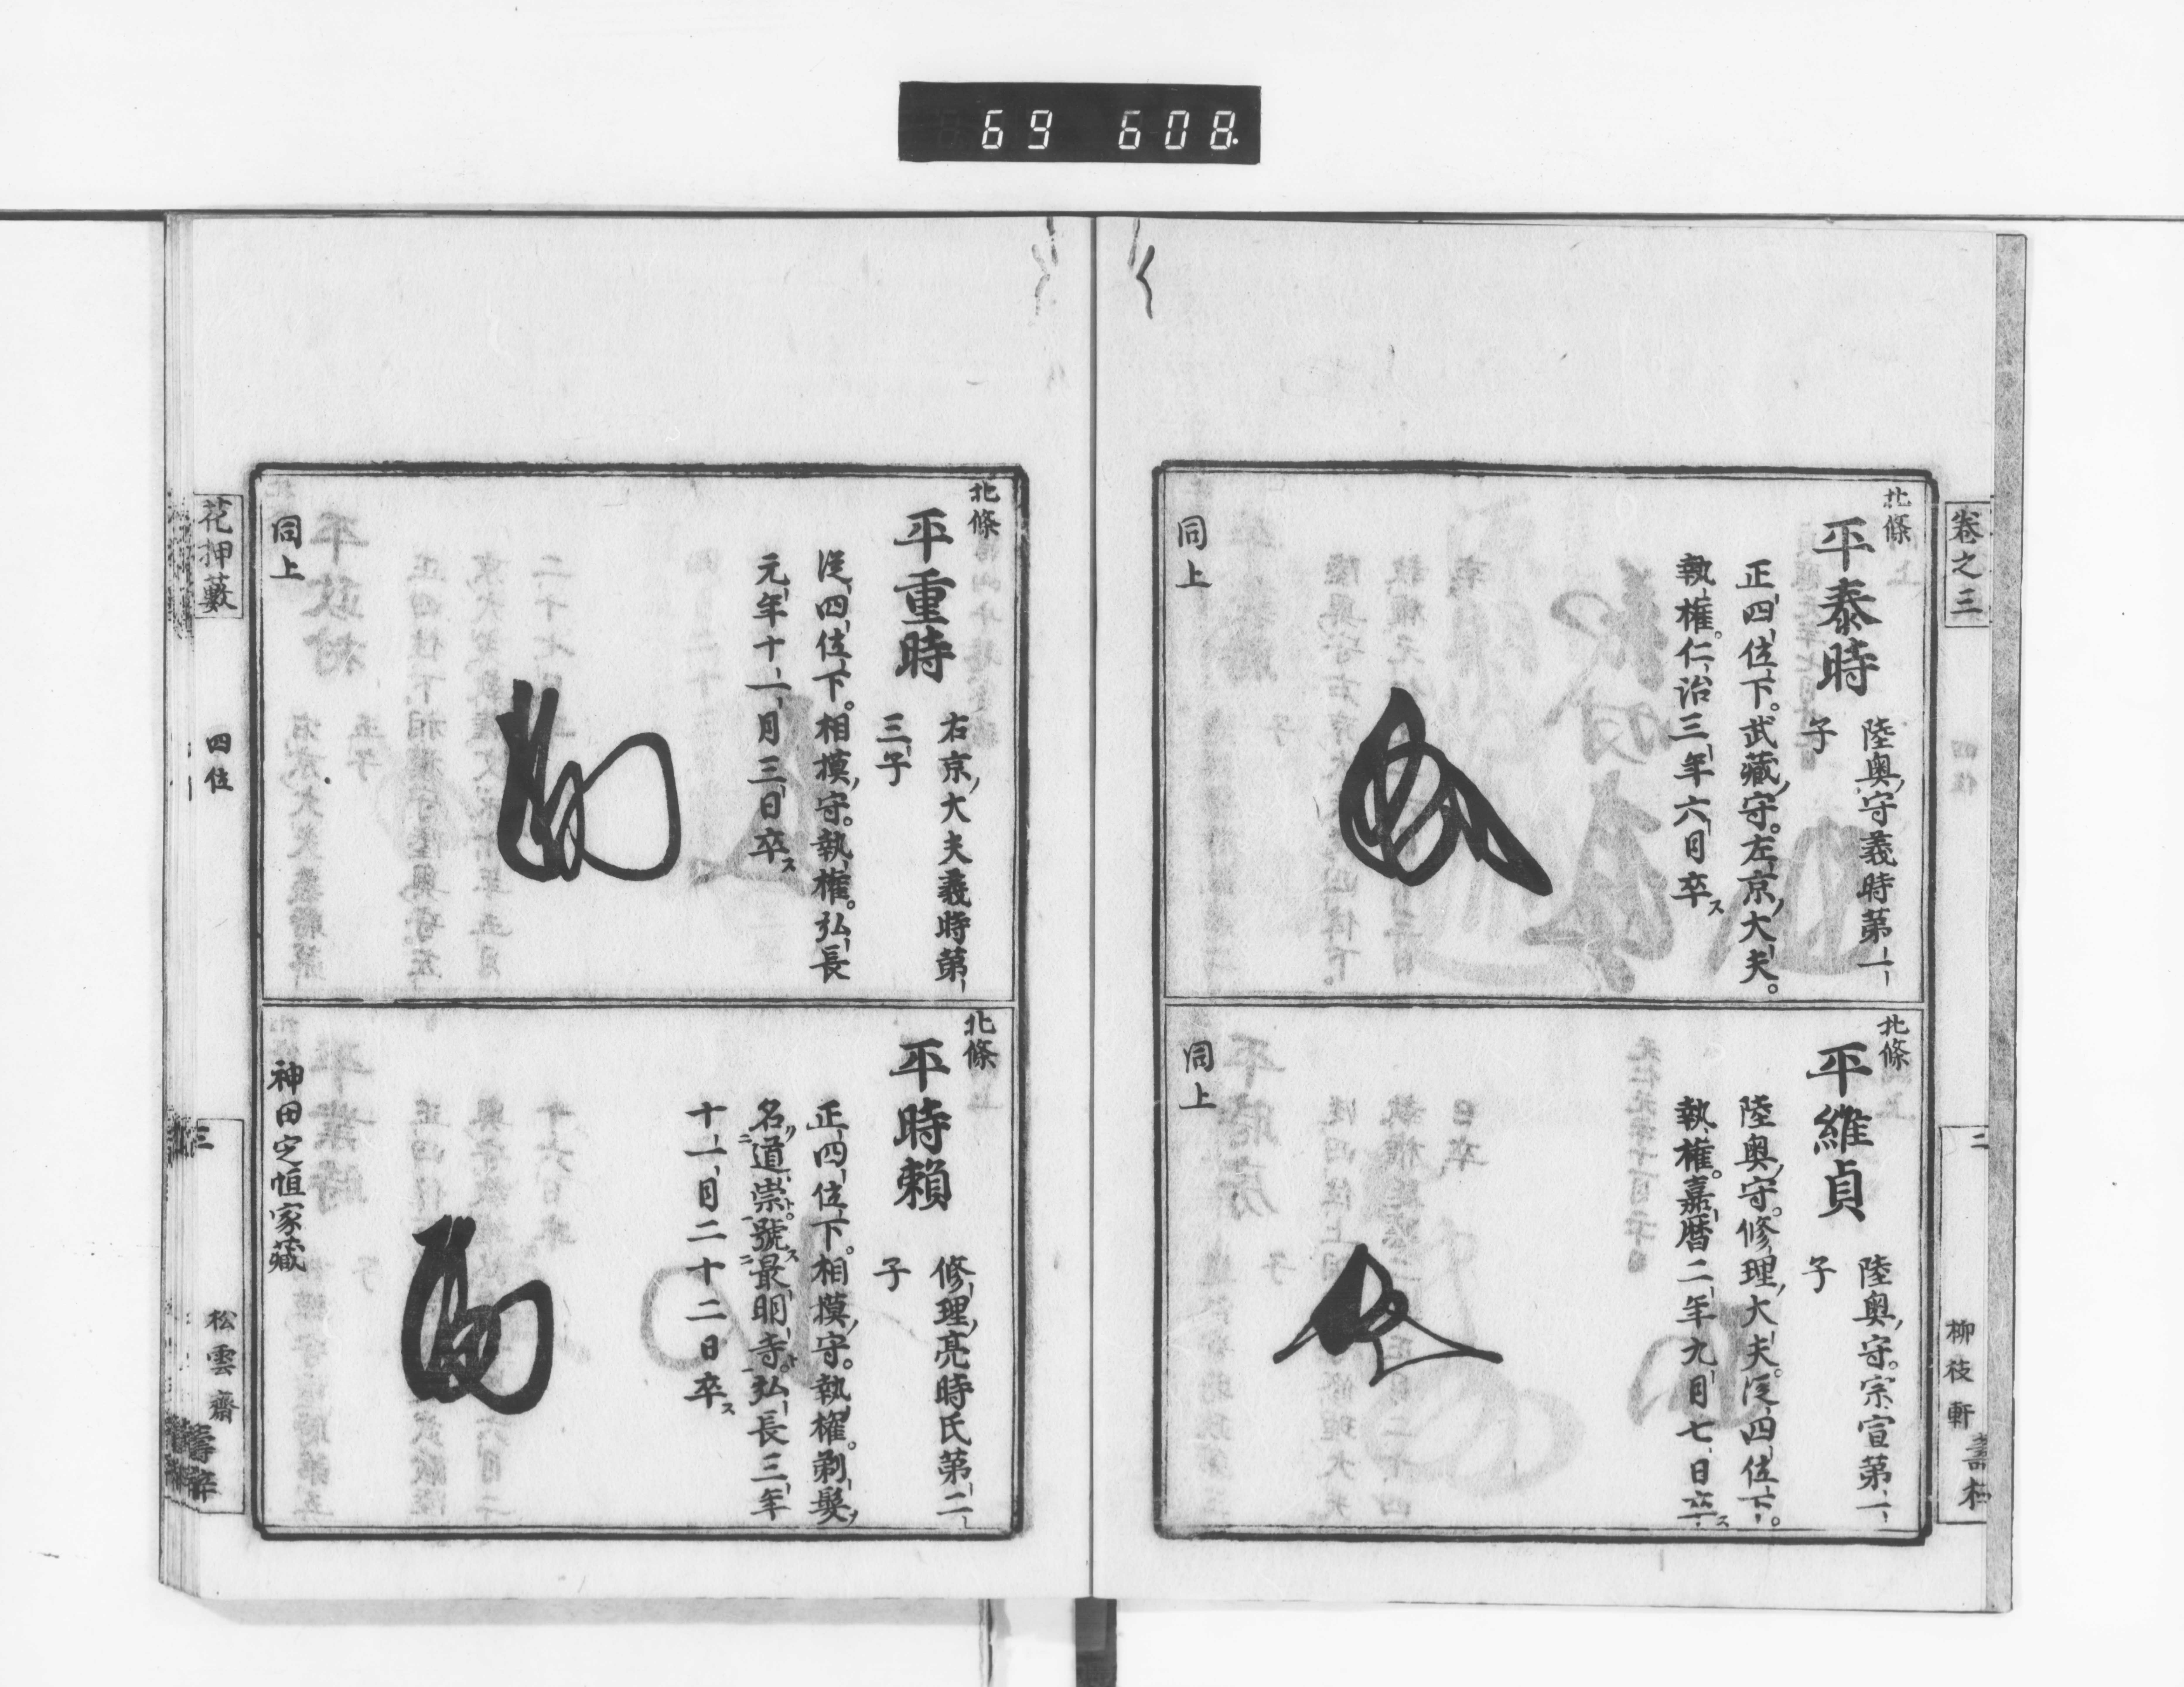 69 608.
卷之三
二
柳枝軒
北條
平泰時
陸奥守義時第一
子
正四位下。武藏守。左京大夫。
執權。仁治三年六月卒ス
同上
北條
平維貞
陸奥守。宗宣第一
子
陸奥守。修理大夫。從四位下。
執權。嘉曆二年九月七日卒ス
同上
北條
平重時
右京大夫義時第
三子
從四位下。相摸守。執權。弘長
元年十一月三日卒ス
同上
北條
平時賴
修理亮時氏第二
子
正四位下。相摸守。執權。剃髮
名道崇。號最明寺。弘長三年
十一月二十二日卒ス
神田定恒家藏
花押藪
四位
三
松雲齋